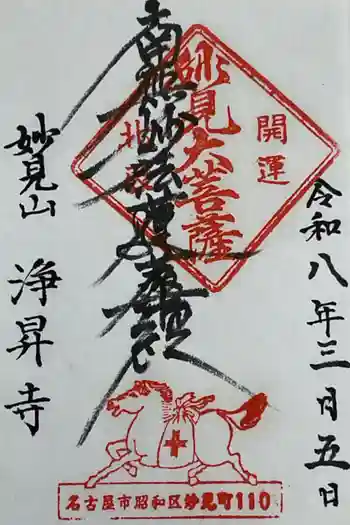 令和八年三月五日
開運
妙見大菩薩
北辰
南無妙法蓮華経
妙見山
浄昇寺
名古屋市昭和区妙見町110